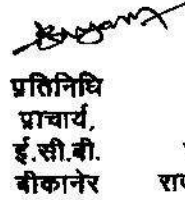 प्रतिनिधि
प्राचार्य,
ई.सी.बी.
बीकानेर